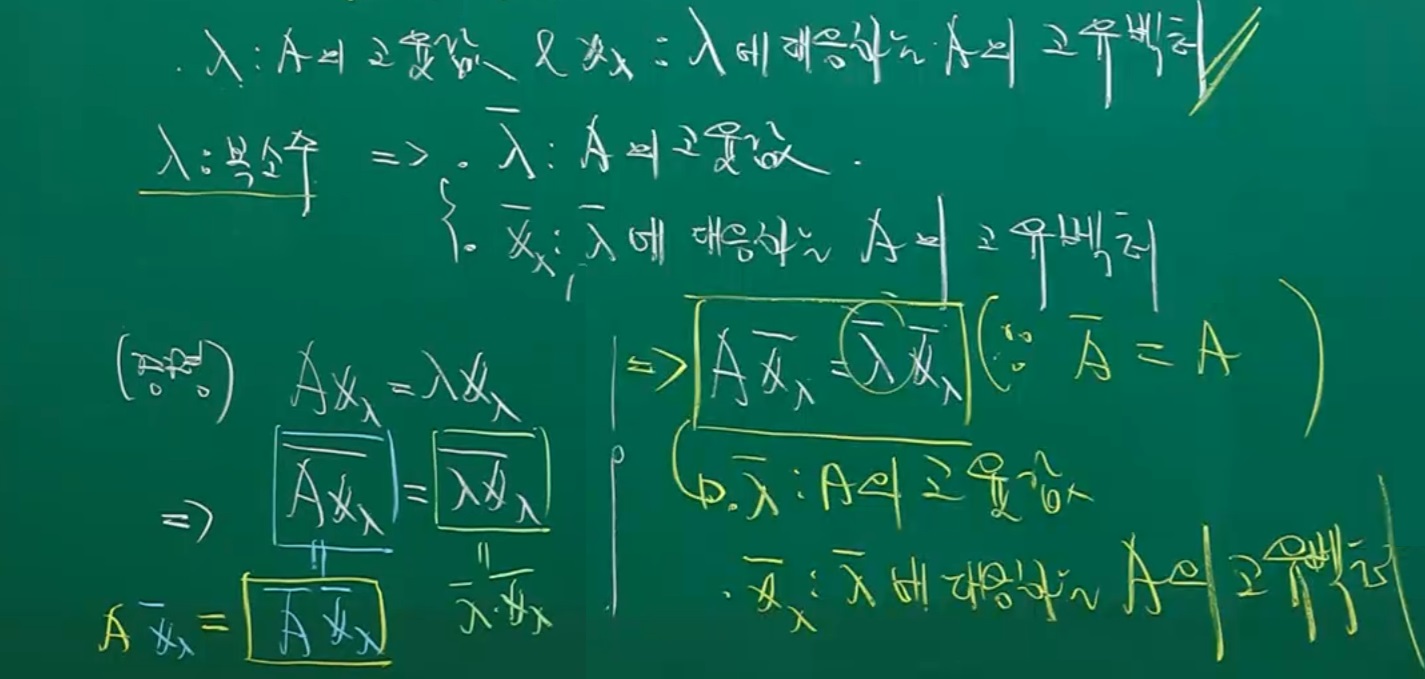 · λ : A의 고윳값 & x_λ : λ에 대응하는 A의 고유벡터
λ : 복소수 => · λ̅ : A의 고윳값.
· x̅_λ : λ̅에 대응하는 A의 고유벡터
(증명) Ax_λ = λx_λ
=> \overline{Ax_λ} = \overline{λx_λ}
|| ||
λ̅·x̅_λ
A x̅_λ = A̅ x̅_λ
=> A x̅_λ = λ̅ x̅_λ (∵ A̅ = A)
· λ̅ : A의 고윳값
· x̅_λ : λ̅에 대응하는 A의 고유벡터